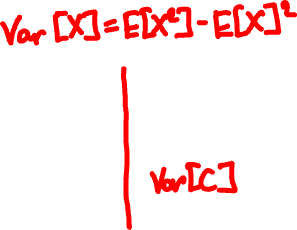 Var [X] = E[X²] - E[X]²
Var[C]